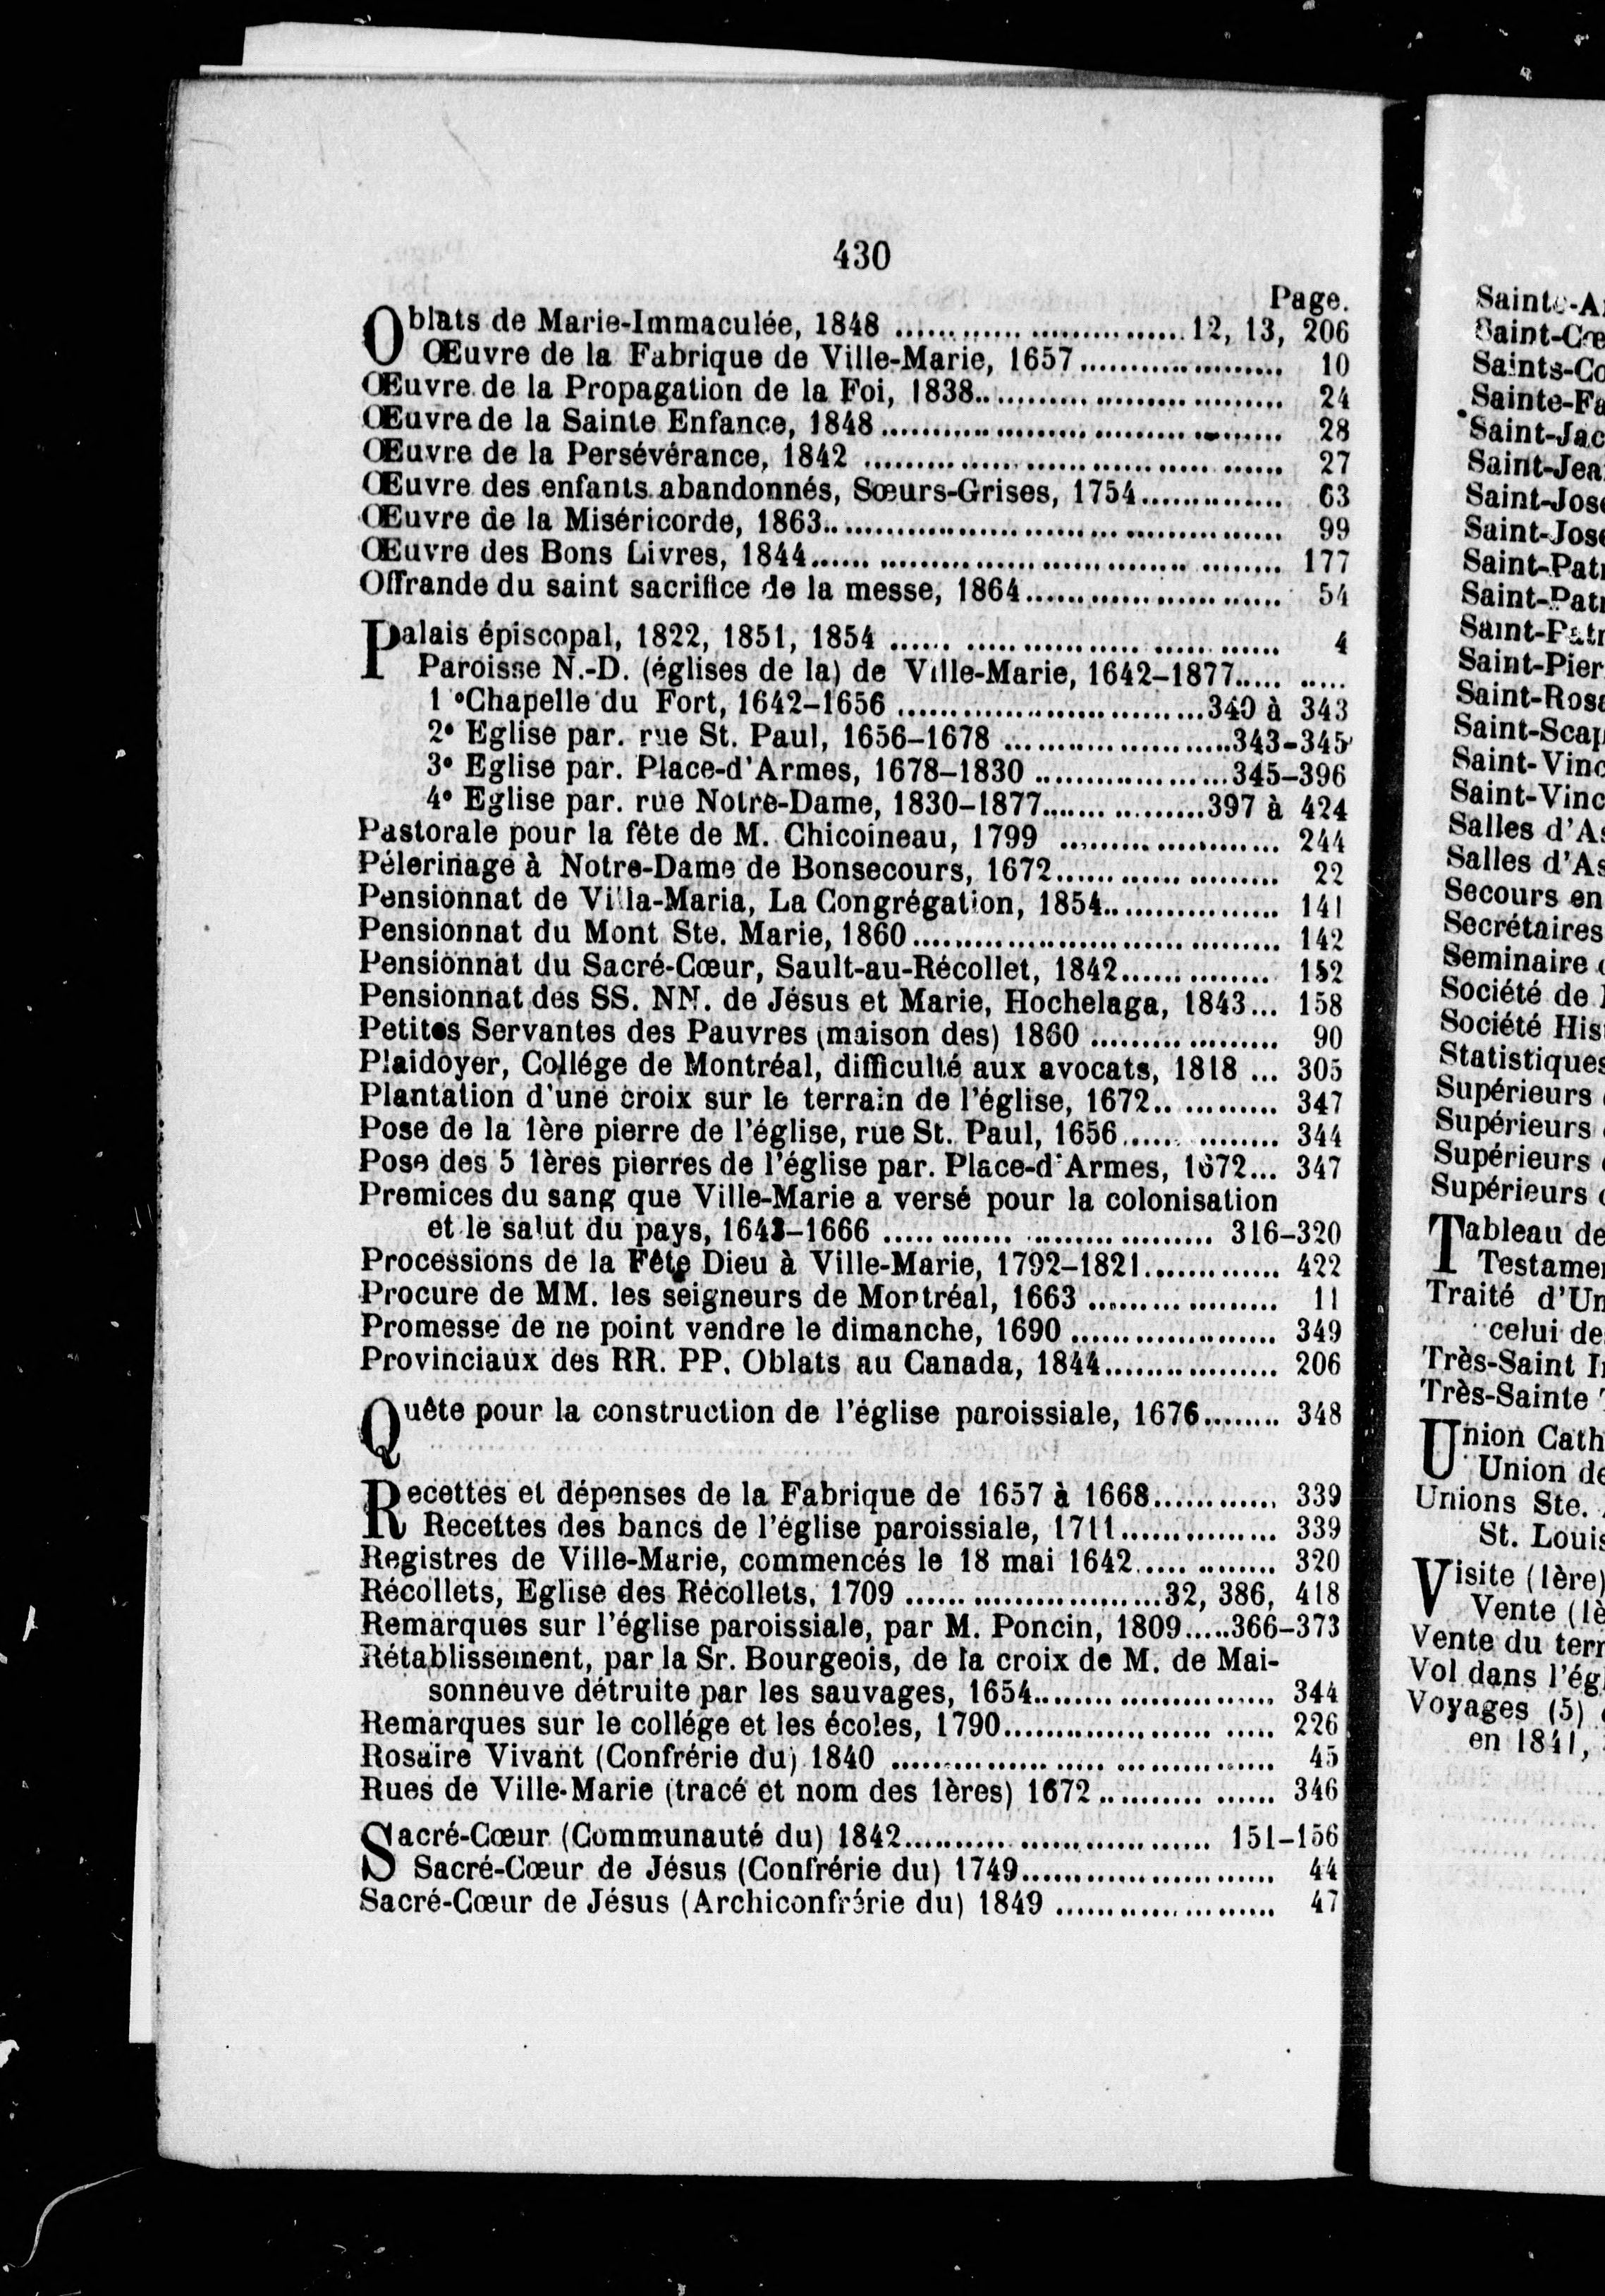 430
Page.
Oblats de Marie-Immaculée, 1848 ........ 12, 13, 206
Œuvre de la Fabrique de Ville-Marie, 1657........ 10
Œuvre de la Propagation de la Foi, 1838........ 24
Œuvre de la Sainte Enfance, 1848........ 28
Œuvre de la Persévérance, 1842 ........ 27
Œuvre des enfants abandonnés, Sœurs-Grises, 1754........ 63
Œuvre de la Miséricorde, 1863........ 99
Œuvre des Bons Livres, 1844........ 177
Offrande du saint sacrifice de la messe, 1864........ 54
Palais épiscopal, 1822, 1851, 1854 ........ 4
Paroisse N.-D. (églises de la) de Ville-Marie, 1642-1877........
1° Chapelle du Fort, 1642-1656 ........ 340 à 343
2e Eglise par. rue St. Paul, 1656-1678 ........ 343-345
3e Eglise par. Place-d'Armes, 1678-1830 ........ 345-396
4e Eglise par. rue Notre-Dame, 1830-1877........ 397 à 424
Pastorale pour la fête de M. Chicoineau, 1799 ........ 244
Pélerinage à Notre-Dame de Bonsecours, 1672........ 22
Pensionnat de Villa-Maria, La Congrégation, 1854........ 141
Pensionnat du Mont Ste. Marie, 1860........ 142
Pensionnat du Sacré-Cœur, Sault-au-Récollet, 1842........ 152
Pensionnat des SS. NN. de Jésus et Marie, Hochelaga, 1843... 158
Petites Servantes des Pauvres (maison des) 1860 ........ 90
Plaidoyer, Collége de Montréal, difficulté aux avocats, 1818 ... 305
Plantation d'une croix sur le terrain de l'église, 1672........ 347
Pose de la 1ère pierre de l'église, rue St. Paul, 1656........ 344
Pose des 5 1ères pierres de l'église par. Place-d'Armes, 1672... 347
Premices du sang que Ville-Marie a versé pour la colonisation
et le salut du pays, 1643-1666 ........ 316-320
Processions de la Fête Dieu à Ville-Marie, 1792-1821........ 422
Procure de MM. les seigneurs de Montréal, 1663 ........ 11
Promesse de ne point vendre le dimanche, 1690 ........ 349
Provinciaux des RR. PP. Oblats au Canada, 1844........ 206
Quête pour la construction de l'église paroissiale, 1676........ 348
Recettes et dépenses de la Fabrique de 1657 à 1668........ 339
Recettes des bancs de l'église paroissiale, 1711........ 339
Registres de Ville-Marie, commencés le 18 mai 1642........ 320
Récollets, Eglise des Récollets, 1709 ........ 32, 386, 418
Remarques sur l'église paroissiale, par M. Poncin, 1809.....366-373
Rétablissement, par la Sr. Bourgeois, de la croix de M. de Mai-
sonneuve détruite par les sauvages, 1654........ 344
Remarques sur le collége et les écoles, 1790........ 226
Rosaire Vivant (Confrérie du) 1840 ........ 45
Rues de Ville-Marie (tracé et nom des 1ères) 1672........ 346
Sacré-Cœur (Communauté du) 1842........ 151-156
Sacré-Cœur de Jésus (Confrérie du) 1749........ 44
Sacré-Cœur de Jésus (Archiconfrérie du) 1849 ........ 47
Sainte-
Saint-
Saints-
Sainte-
Saint-Jac
Saint-Jea
Saint-Jos
Saint-Jos
Saint-Pat
Saint-Pat
Saint-Pat
Saint-Pier
Saint-Ros
Saint-Scap
Saint-Vinc
Saint-Vinc
Salles d'As
Salles d'As
Secours en
Secrétaires
Seminaire
Société de
Société His
Statistiques
Supérieurs
Supérieurs
Supérieurs
Supérieurs
Tableau de
Testame
Traité d'Un
celui de
Très-Saint
Très-Sainte
Union Cath
Union de
Unions Ste.
St. Louis
Visite (1ère)
Vente (1è
Vente du terr
Vol dans l'égl
Voyages (5)
en 1841,